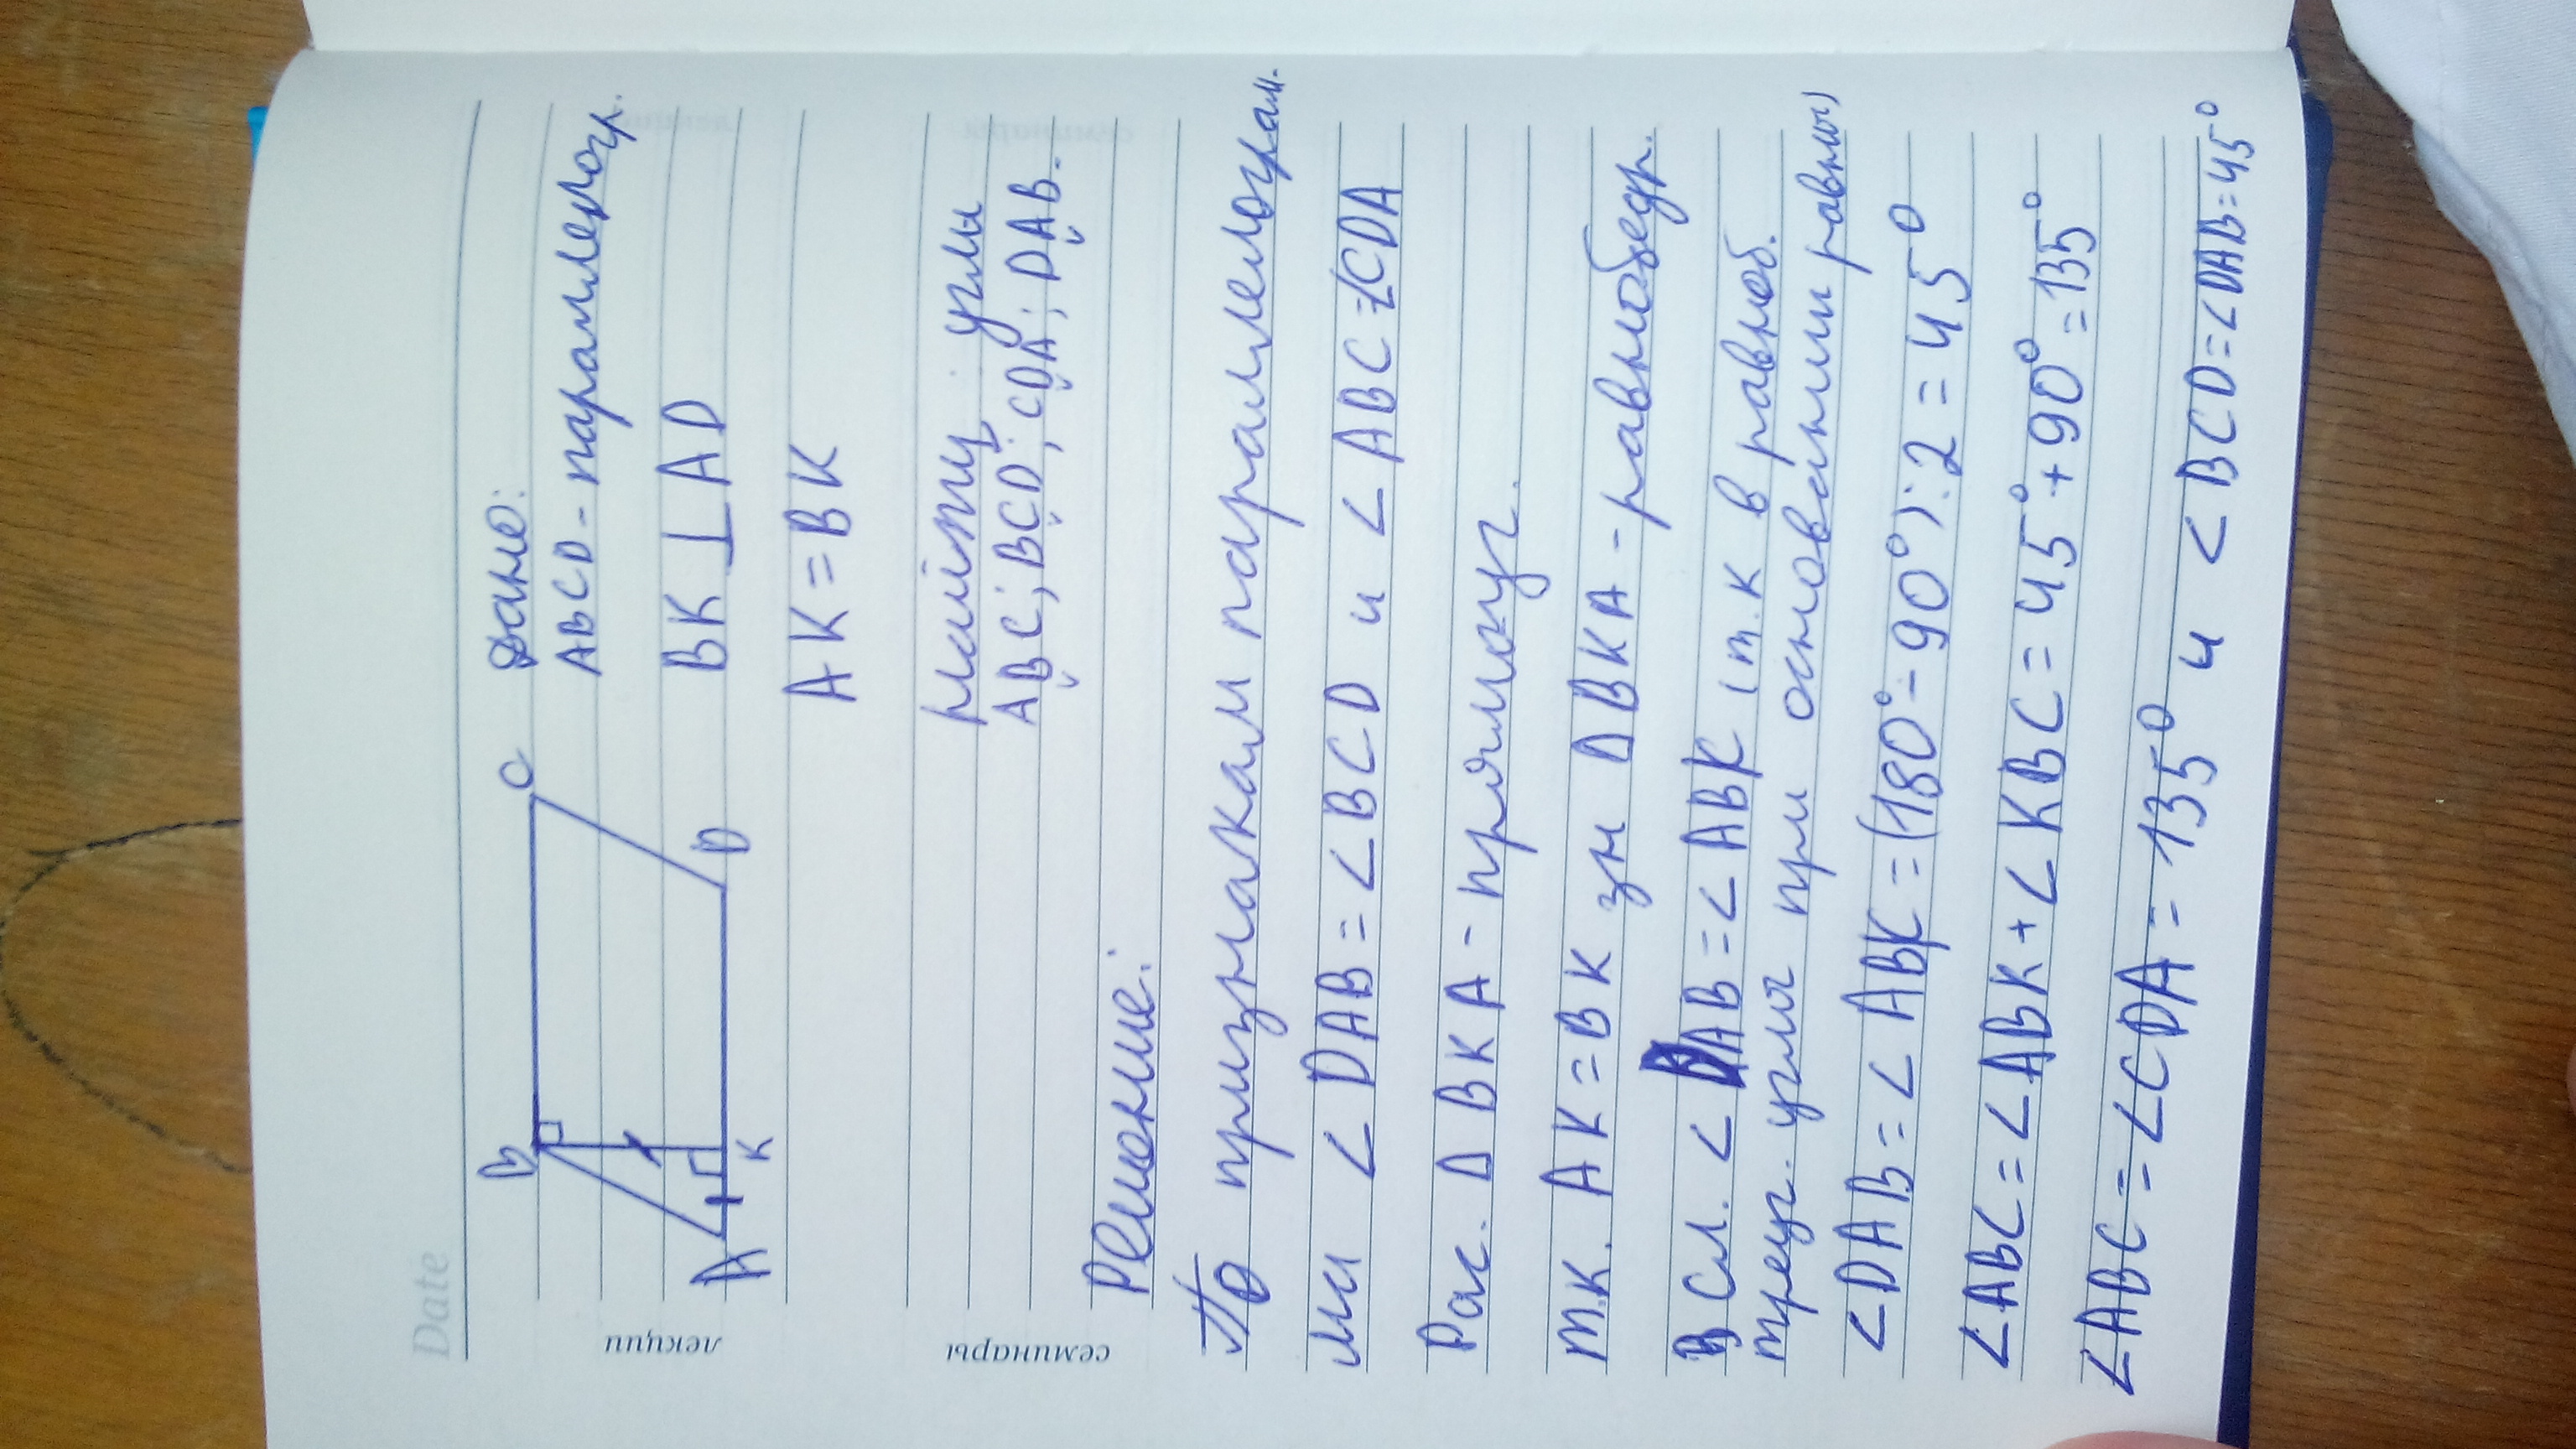 Date
лекции
семинары
B
C
A
K
D
Дано:
ABCD - параллерогр.
BK ⊥ AD
AK = BK
углы
ABC; BCD; CDA; DAB.
Решение:
По признакам паралелограм.
ми < DAB = < BCD и < ABC = <CDA
Рас. Δ BKA - прямоуг.
т.к. AK = BK зн Δ BKA - равнобедр.
В сл. < DAB = < ABK (т.к в равноб.
треуг. углы при основании равны)
<DAB = < ABK = (180° - 90°) : 2 = 45°
<ABC = < ABK + < KBC = 45° + 90° = 135°
<ABC = <CDA = 135° и < BCD = <DAB = 45°